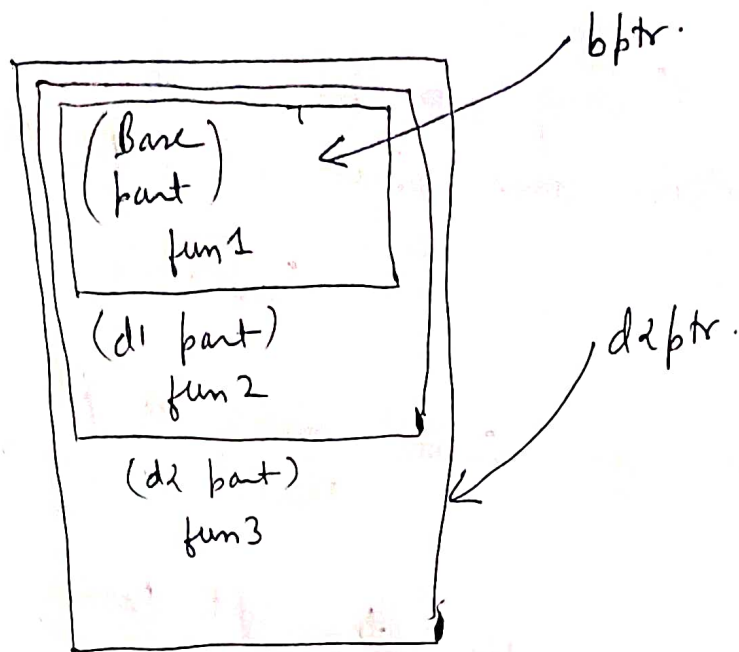 bptr.
(Base
part)
fun1
(d1 part)
fun2
d2ptr.
(d2 part)
fun3